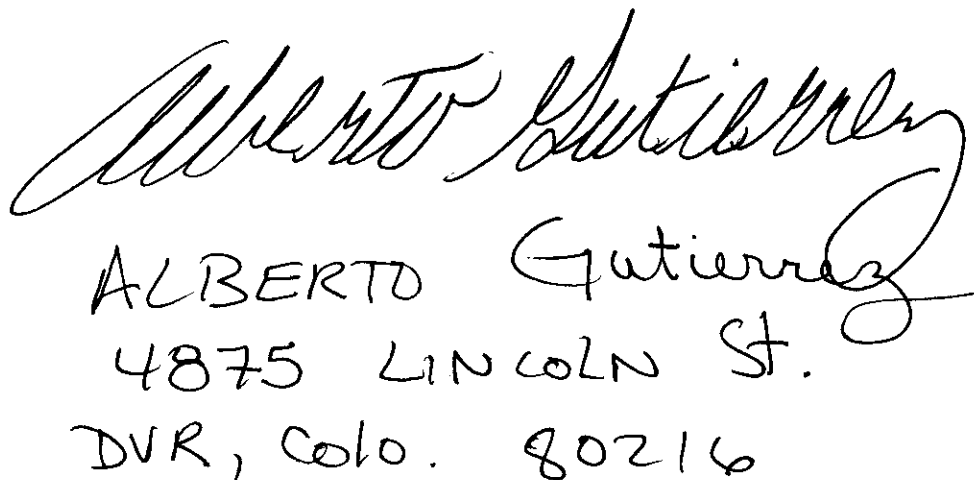 Alberto Gutierrez
ALBERTO Gutierrez
4875 LINCOLN St.
DVR, Colo. 80216